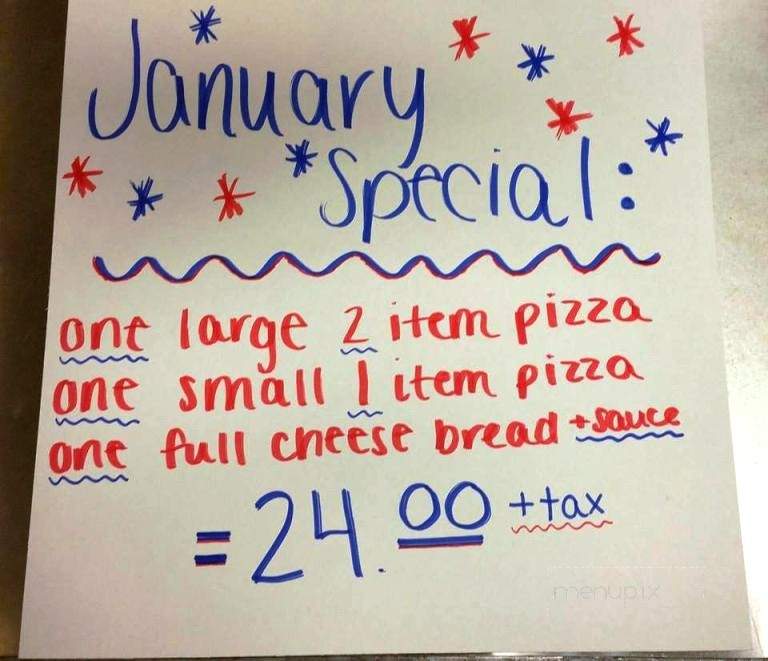 January
Special:
one large 2 item pizza
one small 1 item pizza
one full cheese bread +sauce
= 24.00 +tax
menupix